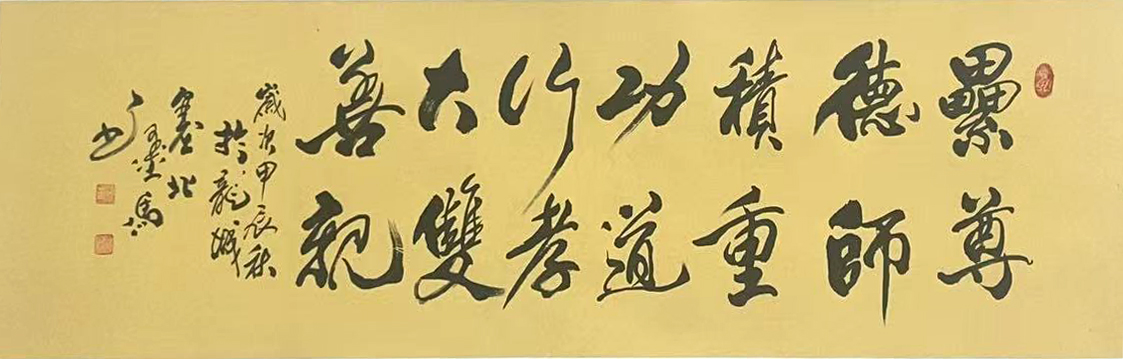 累尊
德師
積重
功道
行孝
大雙
善親
歲次甲辰秋
於龍城
塞北
書